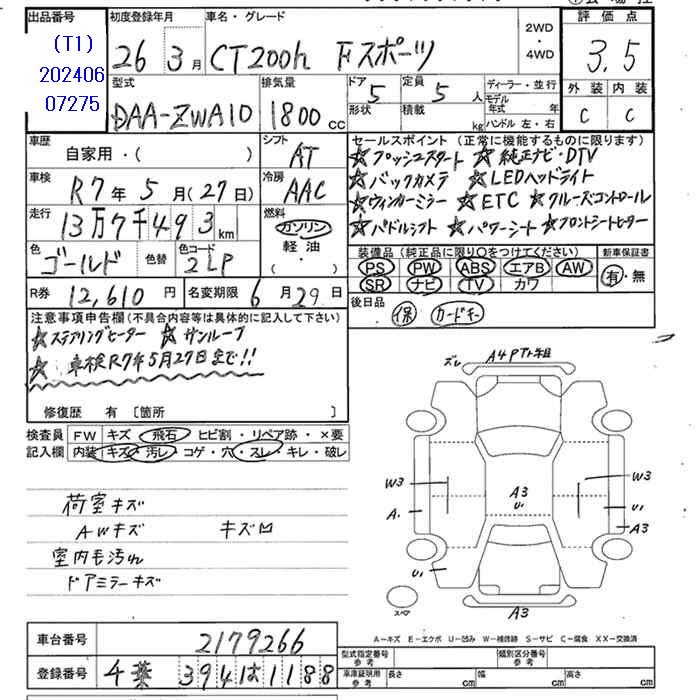 出品番号
(T1)
202406
07275
初度登録年月
26 3月
車名・グレード
CT200h Fスポーツ
2WD
・
4WD
評価点
3.5
外装 内装
C C
型式
DAA-ZWA10
排気量
1800 cc
ドア
形状 5
定員
5 人
積載
kg
ディーラー・並行
モデル
年式 年
ハンドル 左・右
車歴
自家用・( )
シフト
AT
車検
R7年5月(27日)
冷房
AAC
走行
13万7千493km
燃料
ガソリン
軽油
( ・ )
色
ゴールド
色替
色コード
2LP
R券 12,610円
名変期限 6月29日
セールスポイント (正常に機能するものに限ります)
☆プッシュスタート ☆純正ナビ・DTV
☆バックカメラ ☆LEDヘッドライト
☆ウィンカーミラー ☆ETC ☆クルーズコントロール
☆パドルシフト ☆パワーシート ☆フロントシートヒーター
装備品 (純正品に限り○をつけてください)
PS PW ABS エアB AW
SR ナビ TV カワ
新車保証書
有・無
後日品
保 カードキー
注意事項申告欄(不具合内容等は具体的に記入して下さい)
☆ステアリングヒーター ☆サンルーフ
☆車検R7年5月27日まで!!
修復歴 有 〔箇所 〕
検査員
記入欄
FW キズ・飛石・ヒビ割・リペア跡・×要
内装 キズ・汚レ・コゲ・穴・スレ・キレ・破レ
荷室キズ
AWキズ キズ凹
室内毛汚れ
ドアミラーキズ
ズレ
A4P
W3
A.
A3
U1
W3
U1
A3
U1
スペア
A3
A−キズ E−エクボ U−凹み W−補修跡 S−サビ C−腐食 XX−交換済
車台番号 2179266
登録番号 千葉 394は1188
型式指定番号
参考
類別区分番号
参考
車庫証明用
参考
長さ cm
幅 cm
高さ cm